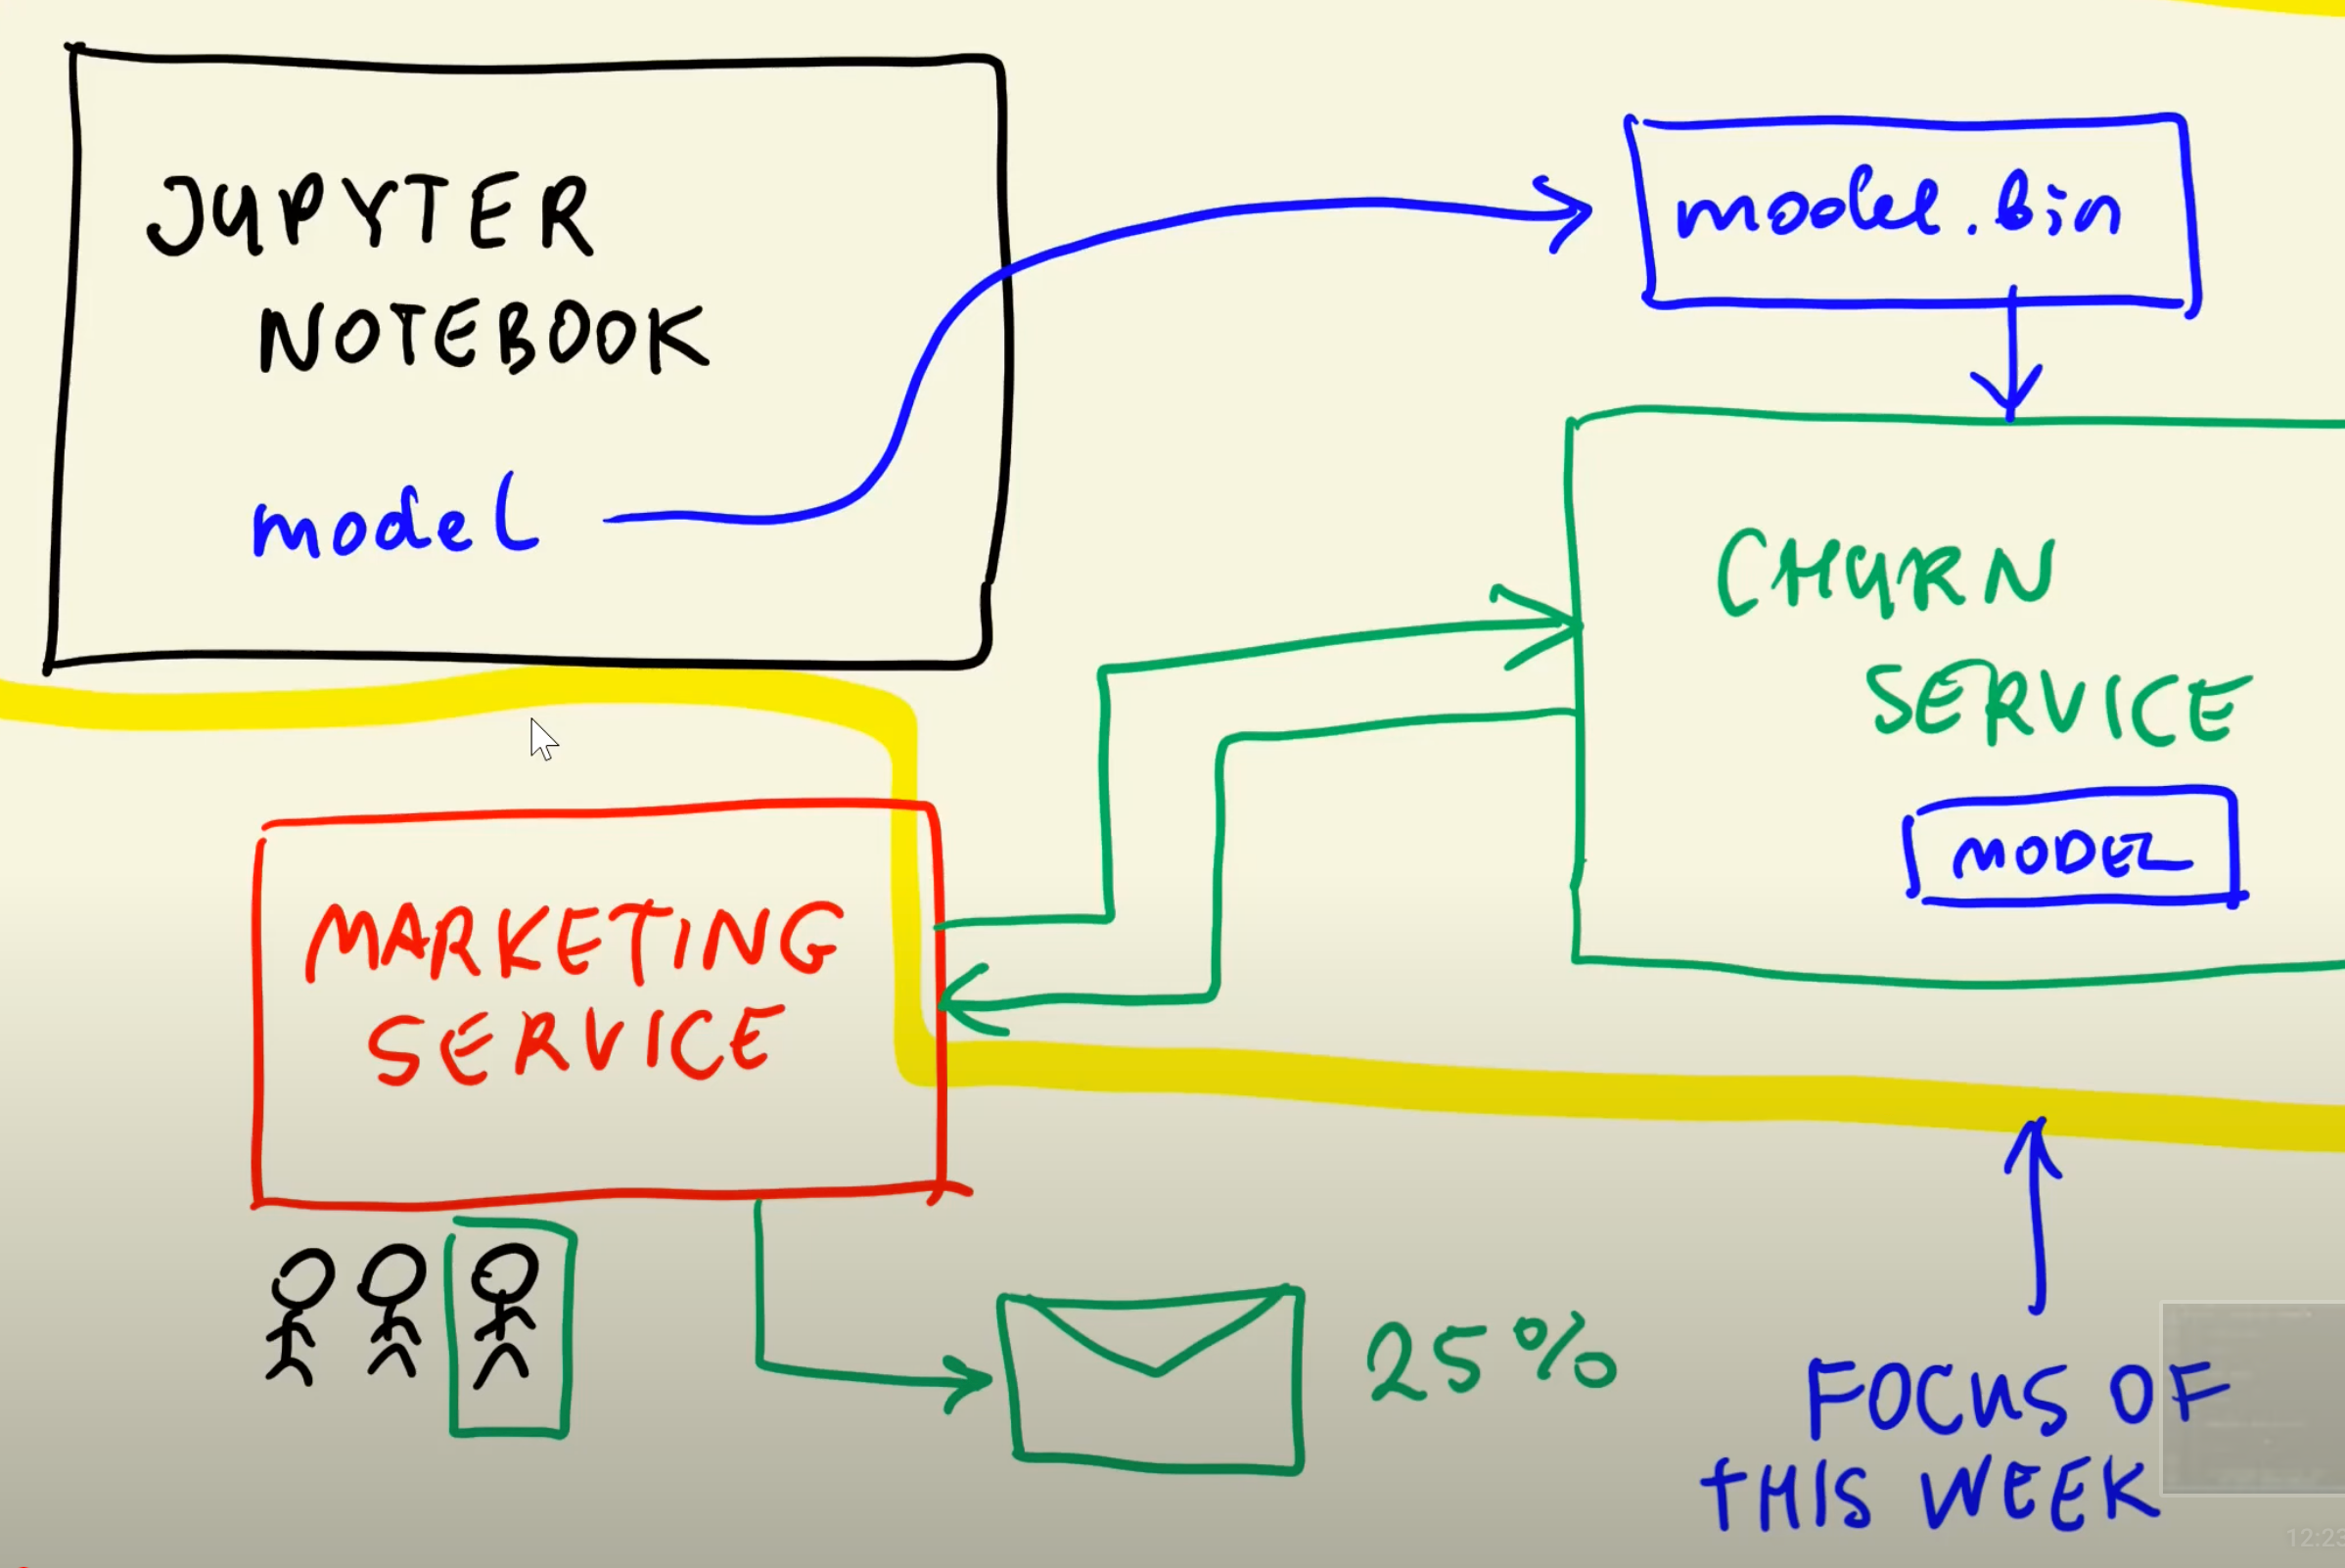 JUPYTER
NOTEBOOK
model
model.bin
CHURN
SERVICE
MODEL
MARKETING
SERVICE
25%
FOCUS OF
THIS WEEK
12:23